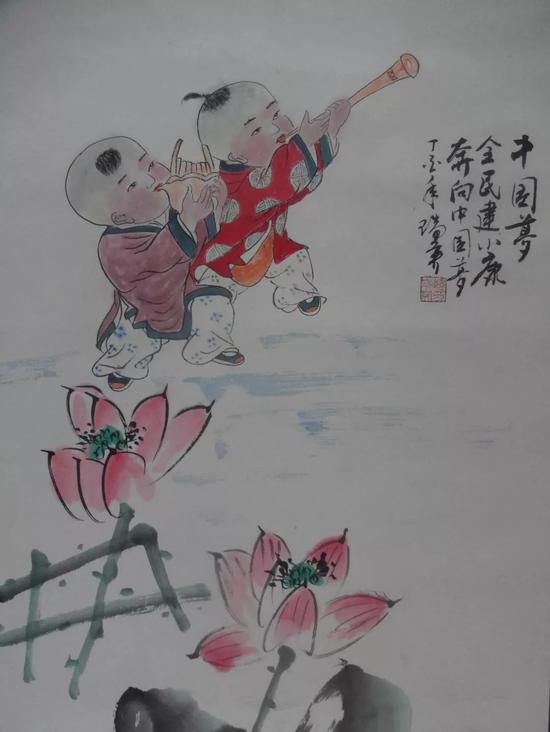 中国梦
全民建小康
奔向中国梦
丁酉年 瑞齐